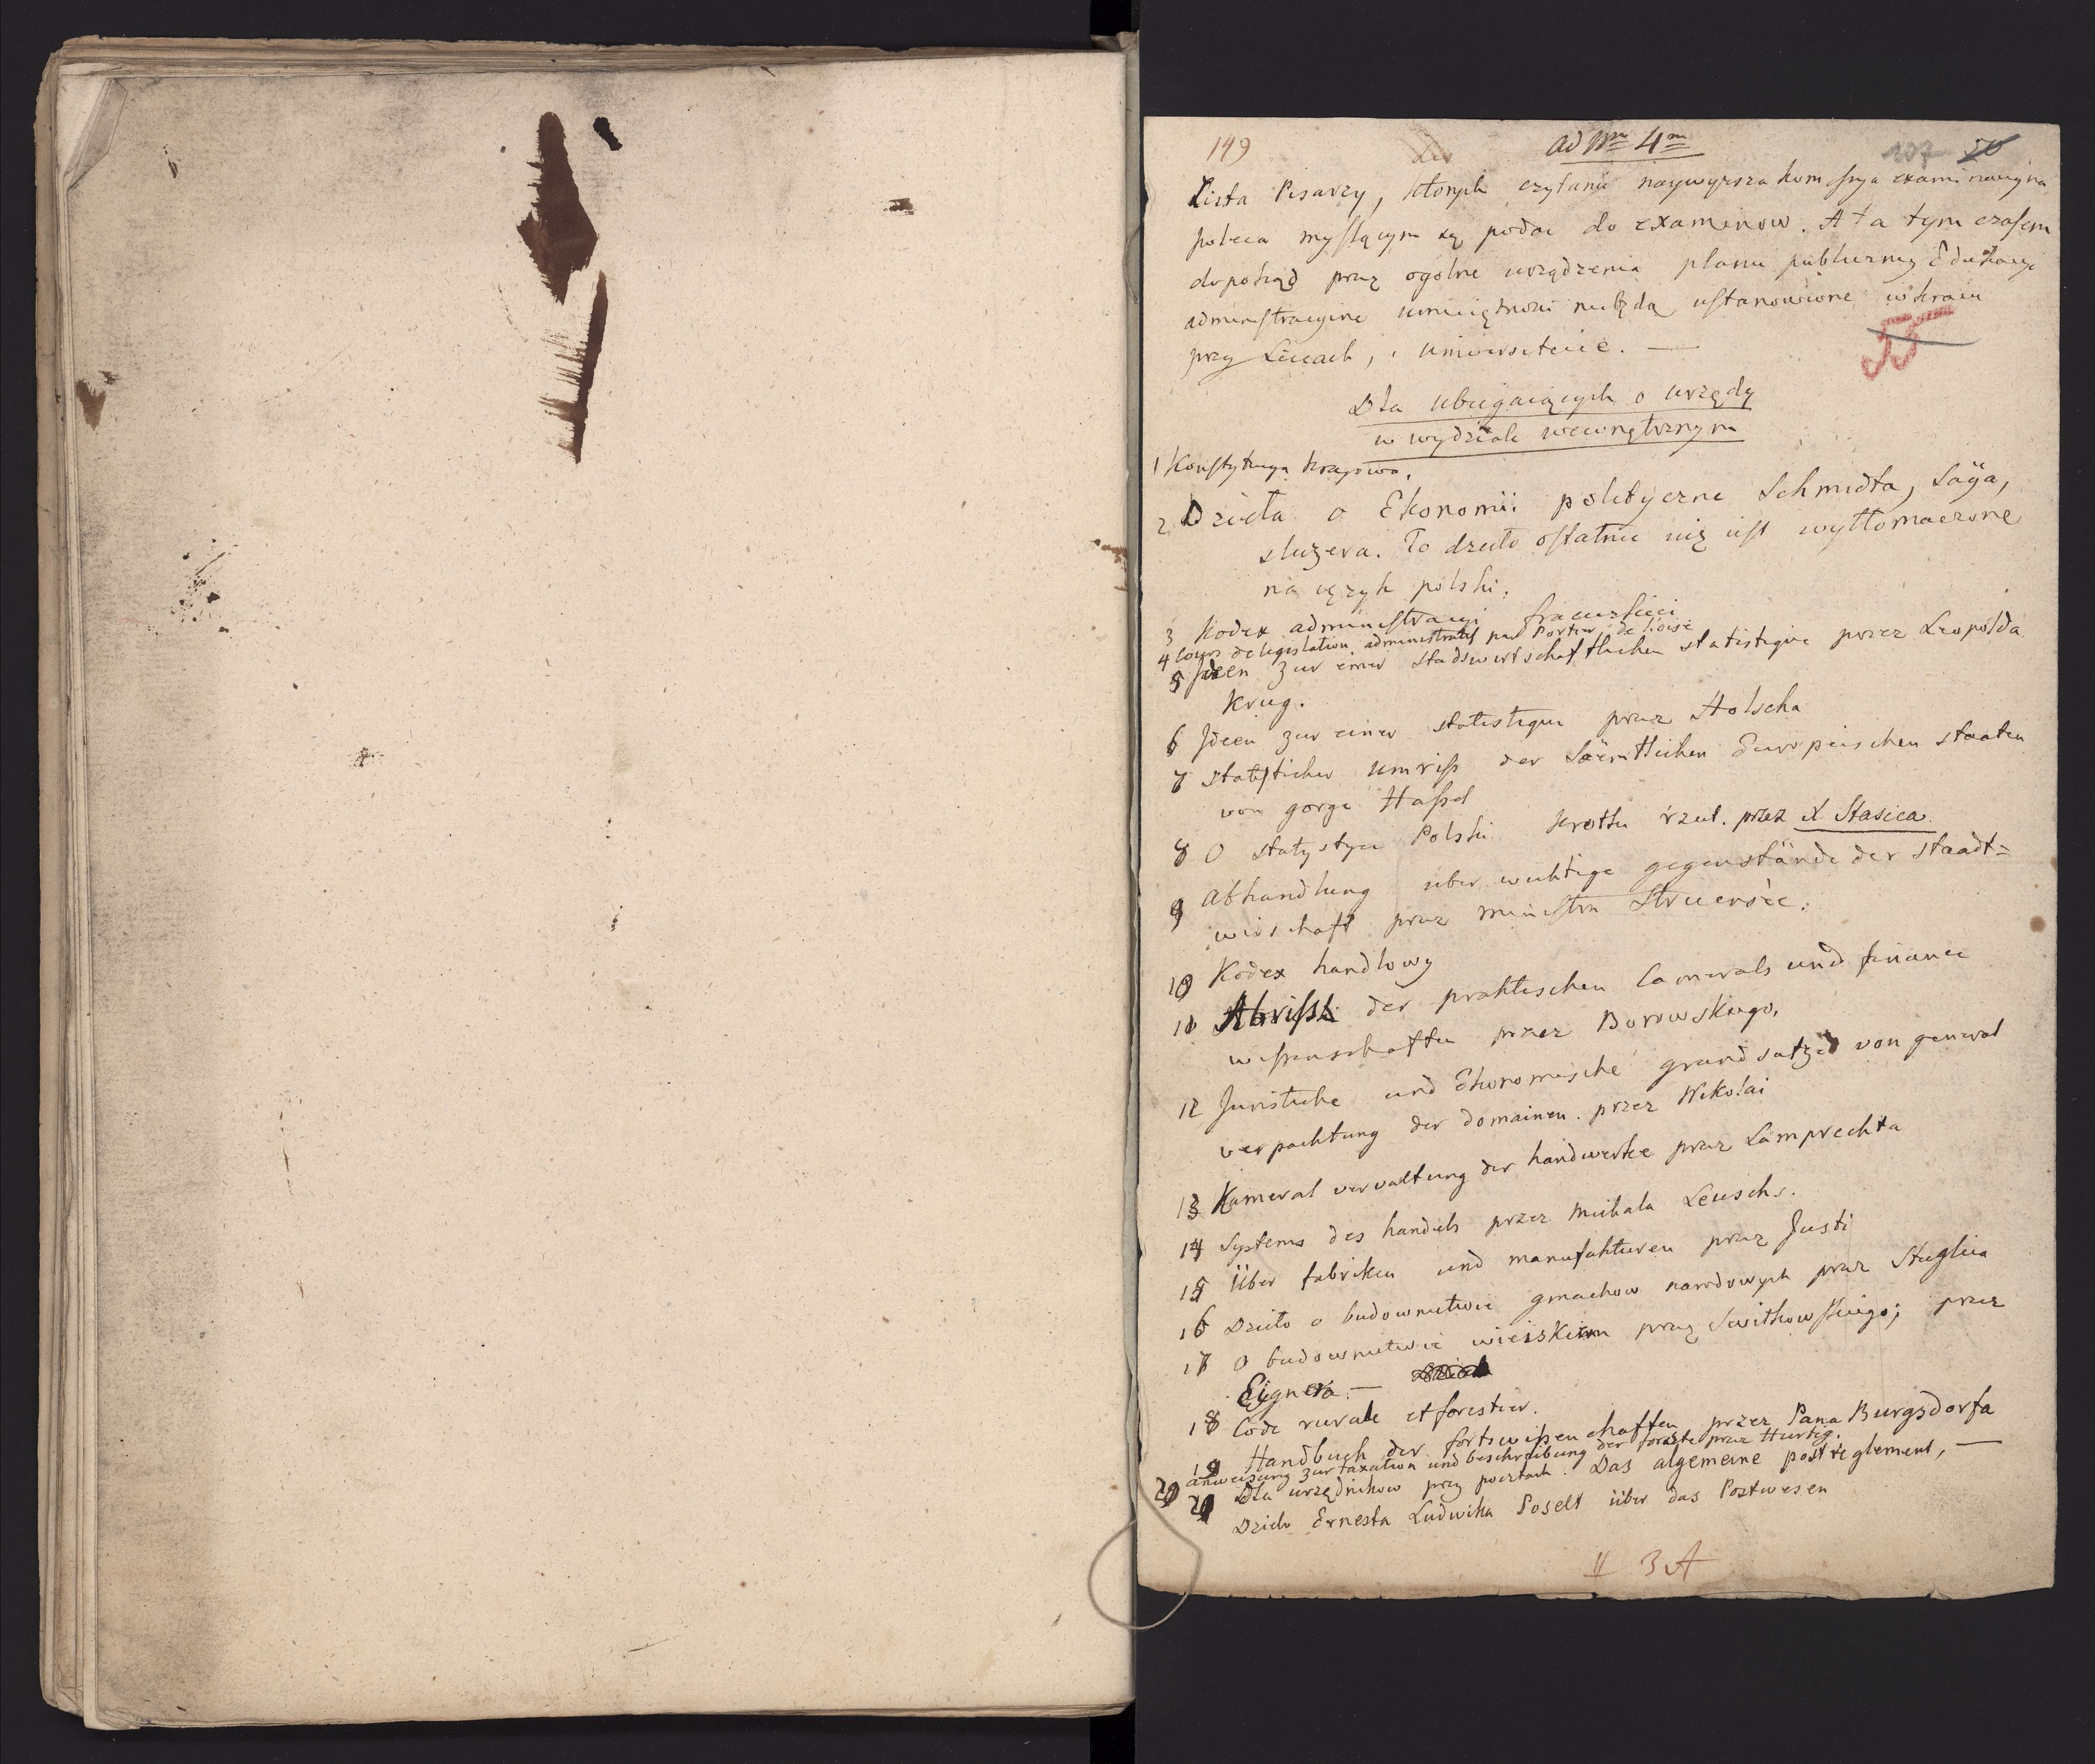 149 ad Nrm 4m 107 50
Lista Pisarzy, ktorych czytanie naywyzsza kommissya examinacyina
poleca myslącym się podac do examinow. A ta tym czasem
dopokąd przez ogolne urządzenia planu publiczney Edukacyi
administracyine umieiętnosci niebędą ustanowione w kraiu
przy Liceach, i uniwersitecie. —
55
Dla ubiegaiących o urzędy
w wydziale wewnętrznym
1 Konstytucya kraiowa.
2 Dzieła o Ekonomii polityczne Schmidta, Säya,
słuzera. To dzieło ostatnie iuż iest wytłomaczone
na ięzyk polski.
3 Kodex administracyi francuskiei
4 Cours de legislation administratif par Portiez de l'oise
5 Ideen zur einer stadswirtschaftlichen statistique przez Leopolda
Krug.
6 Ideen zur einer statistique przez Holscha
7 statisticher umriss der Säemtlichen Europeischen staaten
von gorge Hassel
8 O statystyce Polski krotki rzut. przez X Stasica
9 Abhandlung uber wichtige gegenstände der staadt=
wirschaft przez ministra Struensèe.
10 Kodex handlowy
11 Abriss der praktischen Camerals und finance
wissenschaften przez Borowskiego.
12 Juristiche und Ekonomische grundsatze von general
verpachtung der domainen. przez Nikolai
13 Kameral verwaltung der handwerke przez Lamprechta
14 Systems des handels przez michala Leuschs.
15 Über fabriken und manufakturen przez Justi
16 Dzieło o budownictwie gmachow narodowych przez Stieglica
17 O budownictwie wieiskim przez Switkowskiego; przez
Eygnera. —
18 Code rurale et forestier.
19 Handbuch der fortswissenschaften przez Pana Burgsdorfa
20 anweisung zur taxation und beschreibung der forste przez Hartig.
21 Dla urzędnikow przy pocztach. Das algemeine postreglement, —
Dzieło Ernesta Ludwika Poselt über das Postwesen
II 3 A